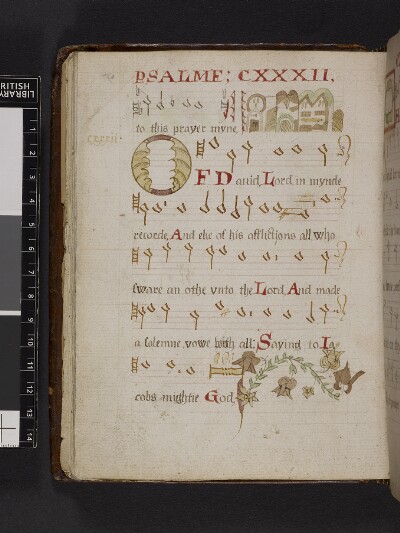 PSALME; CXXXII,
to this prayer myne
CXXXII
OF Dauid, Lord in mynde
recorde, And eke of his afflictions all, who
sware an othe vnto the Lord, And made
a solemne vowe with all; Sayind to Ia
cobs myghtie God,
BRITISH
LIBRARY
1
2
3
4
5
6
7
8
9
10
11
12
13
14